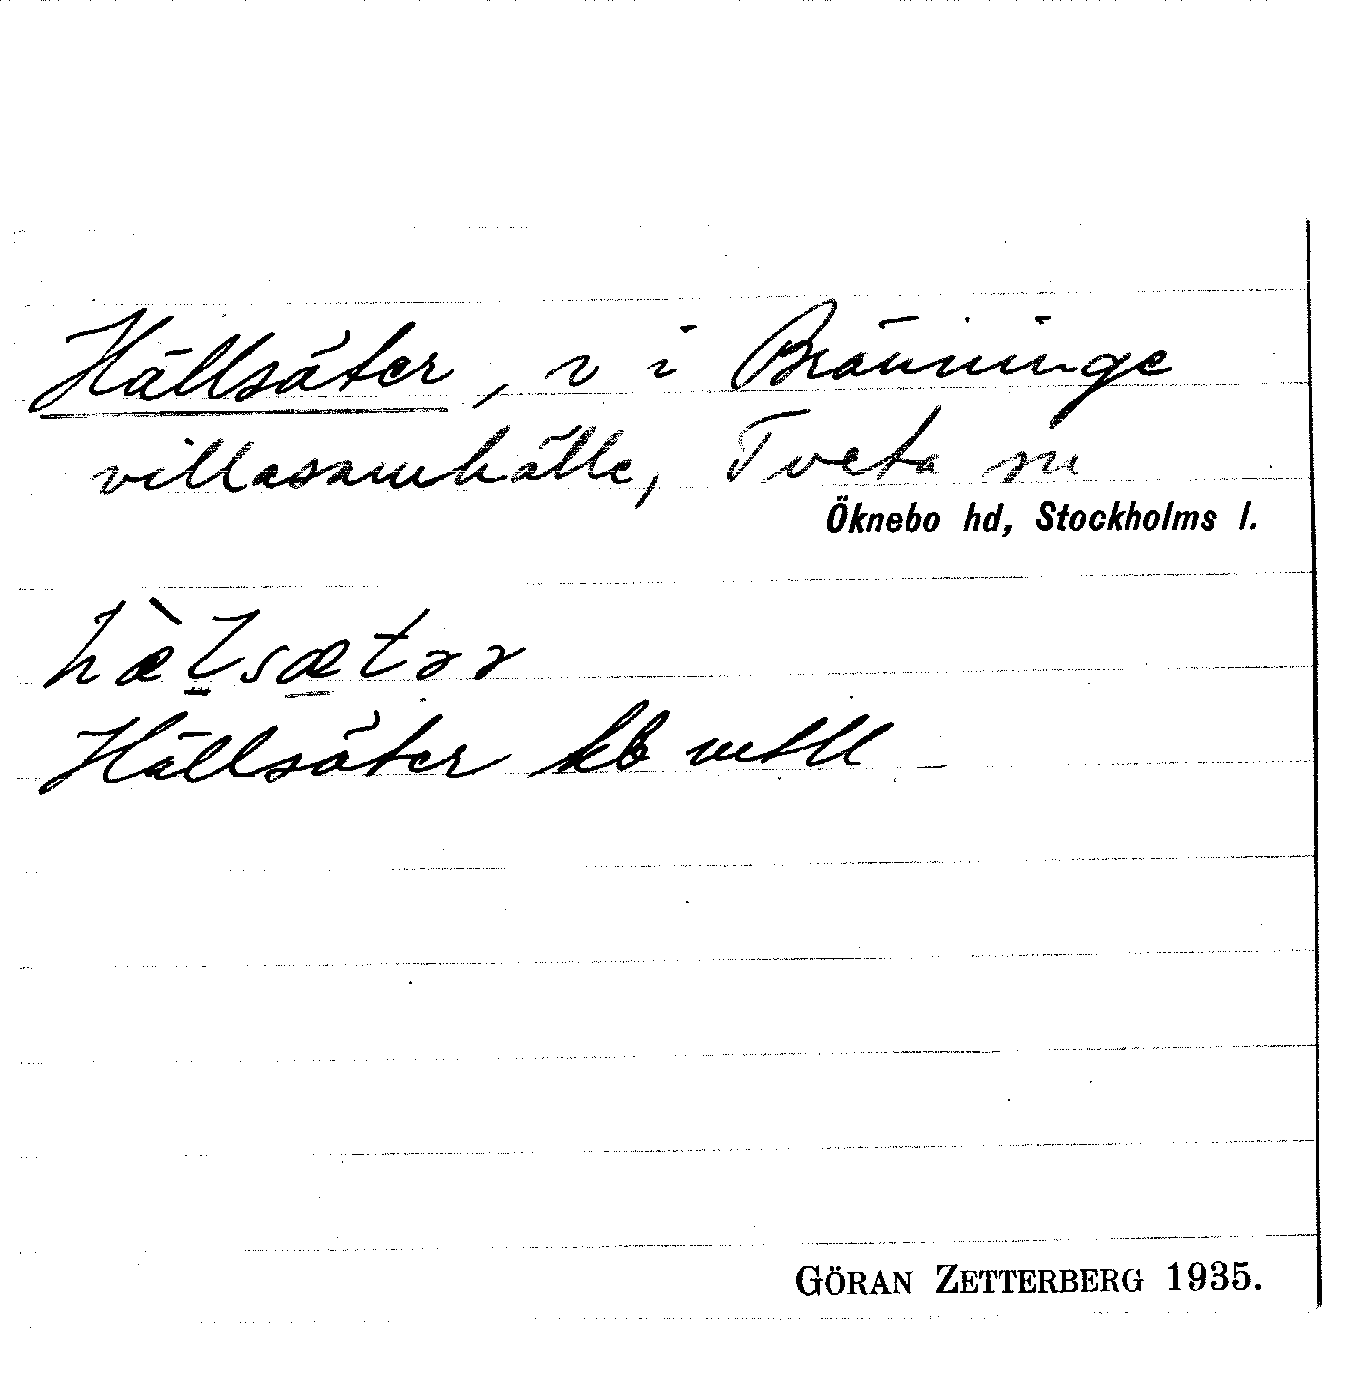 Hällsäter, v i Bränninge
villasamhälle, Tveta sn
Öknebo hd, Stockholms l.
hæ̀l̠sæ̠tər
Hällsäter kb uttll
GÖRAN ZETTERBERG 1935.